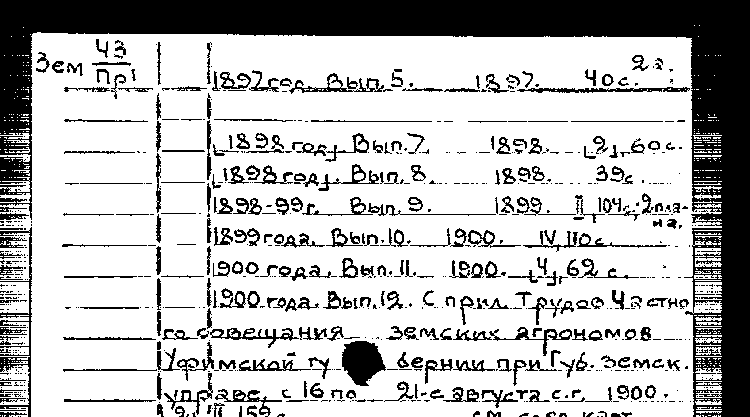 Зем 43
Пр1
2а:
1897год. Вып. 5. 1897. 40с.
[1898 год]. Вып. 7. 1898. [2], 60с.
[1898 год]. Вып. 8. 1898. 39с.
1898-99г. Вып. 9. 1899. II, 104с.; 2 пла-
на.
1899 года. Вып. 10. 1900. IV, 110с.
1900 года. Вып. 11. 1900. [4], 62 с.
1900 года. Вып. 12. С прил. Трудов Частно
го совещания земских агрономов
Уфимской гу бернии при Губ. земск.
управе, с 16 по 21-е августа с.г. 1900.
159с